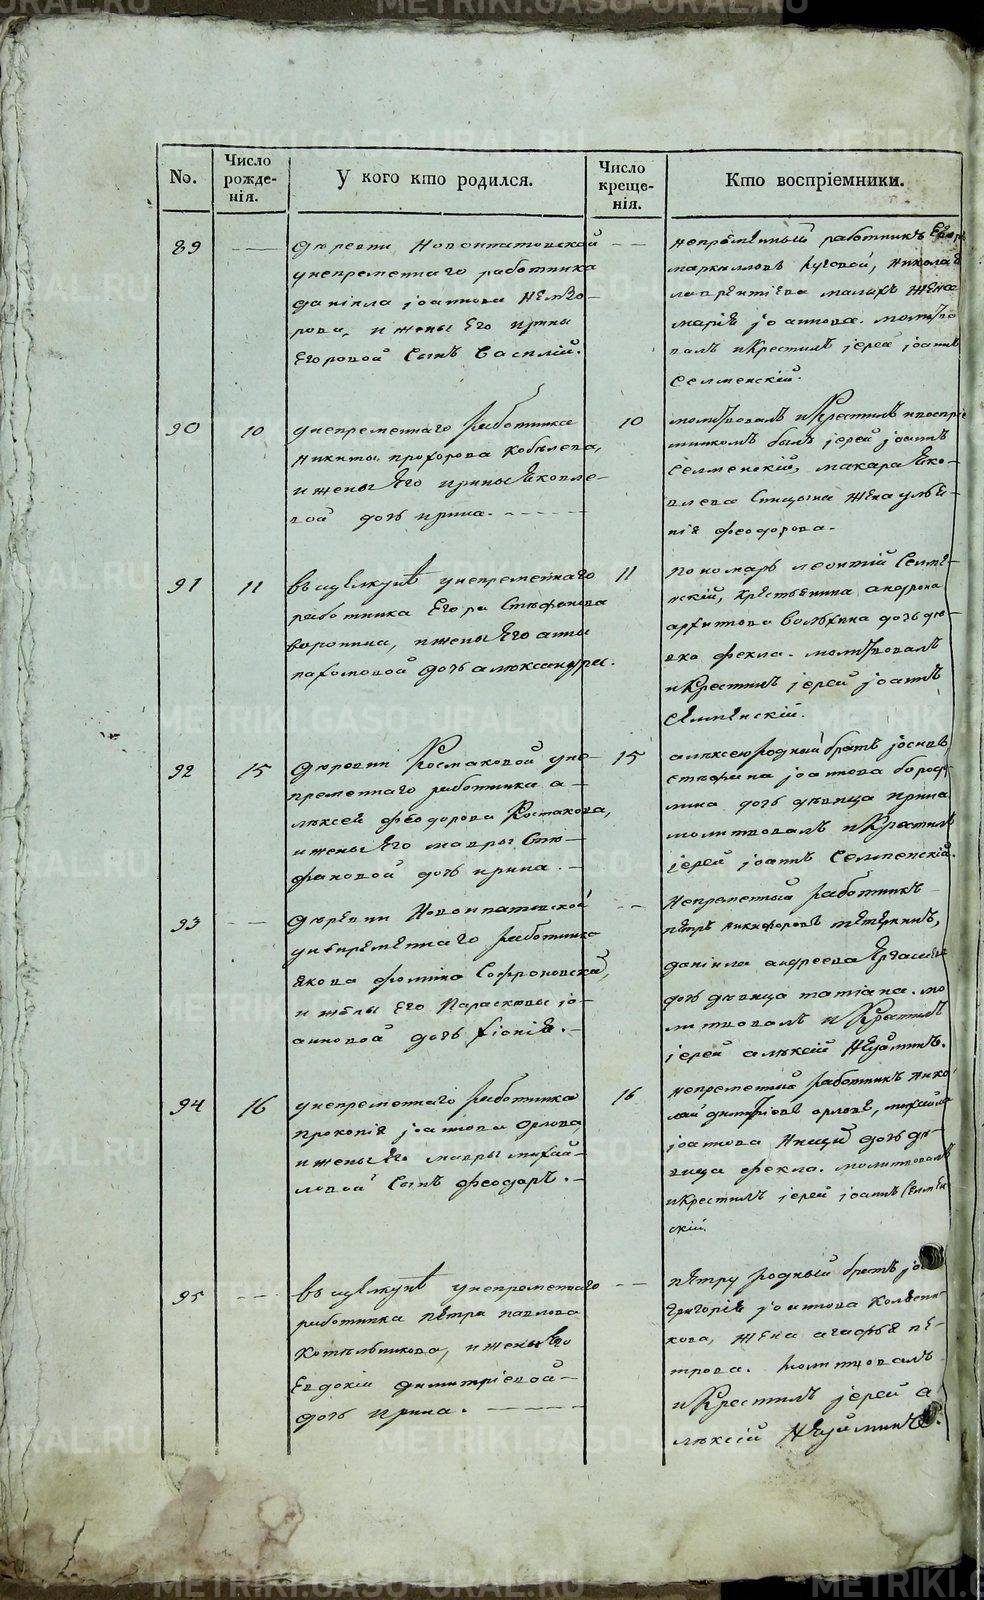 No.
Число рожде-нія.
У кого кто родился.
Число креще-нія.
Кто воспріемники.
89
деревни Новоипатовской
унепременнаго работника
даніила іоаннова
рова, и жены Его ирины
Егоровой Сынъ Василій.
непремѣнный работникъ
маркилловъ Луговой, николая
лаврентіева малыхъ жена
марія іоаннова. молитво
валъ и Крестилъ іерей іоаннъ
Селменскій.
90
10
унепременнаго работника
никиты прохорова Кобелева,
и жены Его ирины Яковле-
вой дочь ирина.
10
молитвовалъ и Крестилъ и воспріе
мникомъ былъ іерей іоаннъ
Селменскій, макара Яко-
влева Спицына жена улье-
нія феодорова.
91
11
въ щелкунѣ унепременнаго
работника Егора Стефанова
воронина, и жены Его анны
пахомовой дочь александра.
11
пономарь леонтій Селме-
нскій, крестьянина андрона
дочь дѣ-
вка фекла. молитвовалъ
и Крестилъ іерей іоаннъ
Селменскій.
92
15
деревни Космаковой уне-
пременнаго работника а-
лексея феодорова Костакова,
и жены Его мавры Сте-
фановой дочь ирина.
15
алексею родный братъ іосифъ
стефана іоаннова бороду-
лина дочь девица ирина
молитвовалъ и Крестилъ
іерей іоаннъ Селменскій.
93
деревни Новоипатовской
унепременнаго работника
якова фомина Софроновскаго,
и жены Его Параскевы іо-
анновой дочь фіонія.
Непременный работникъ
петръ никифоровъ петеринъ,
даніила андреева
дочь девица татіана. мо
литвовалъ и Крестилъ
іерей алексій Неуйминъ.
94
16
унепременнаго работника
прокопія іоаннова орлова
и жены Его мавры михай-
ловой Сынъ феодоръ.
16
непременный работникъ нико
лай димитріевъ орловъ, михайла
іоаннова дочь де-
вица фекла. молитвовалъ
и крестилъ іерей іоаннъ Селмен
скій.
95
въ щелкунѣ унепременнаго
работника петра павлова
Котельникова, и жены его
Евдокіи димитріевой
дочь ирина.
петру родный братъ
григорія іоаннова Колесни-
кова, жена агафья пе-
трова. молитвовалъ
и Крестилъ іерей а
лексій Неуйминъ.
METRIKI.GASO-URAL.RU